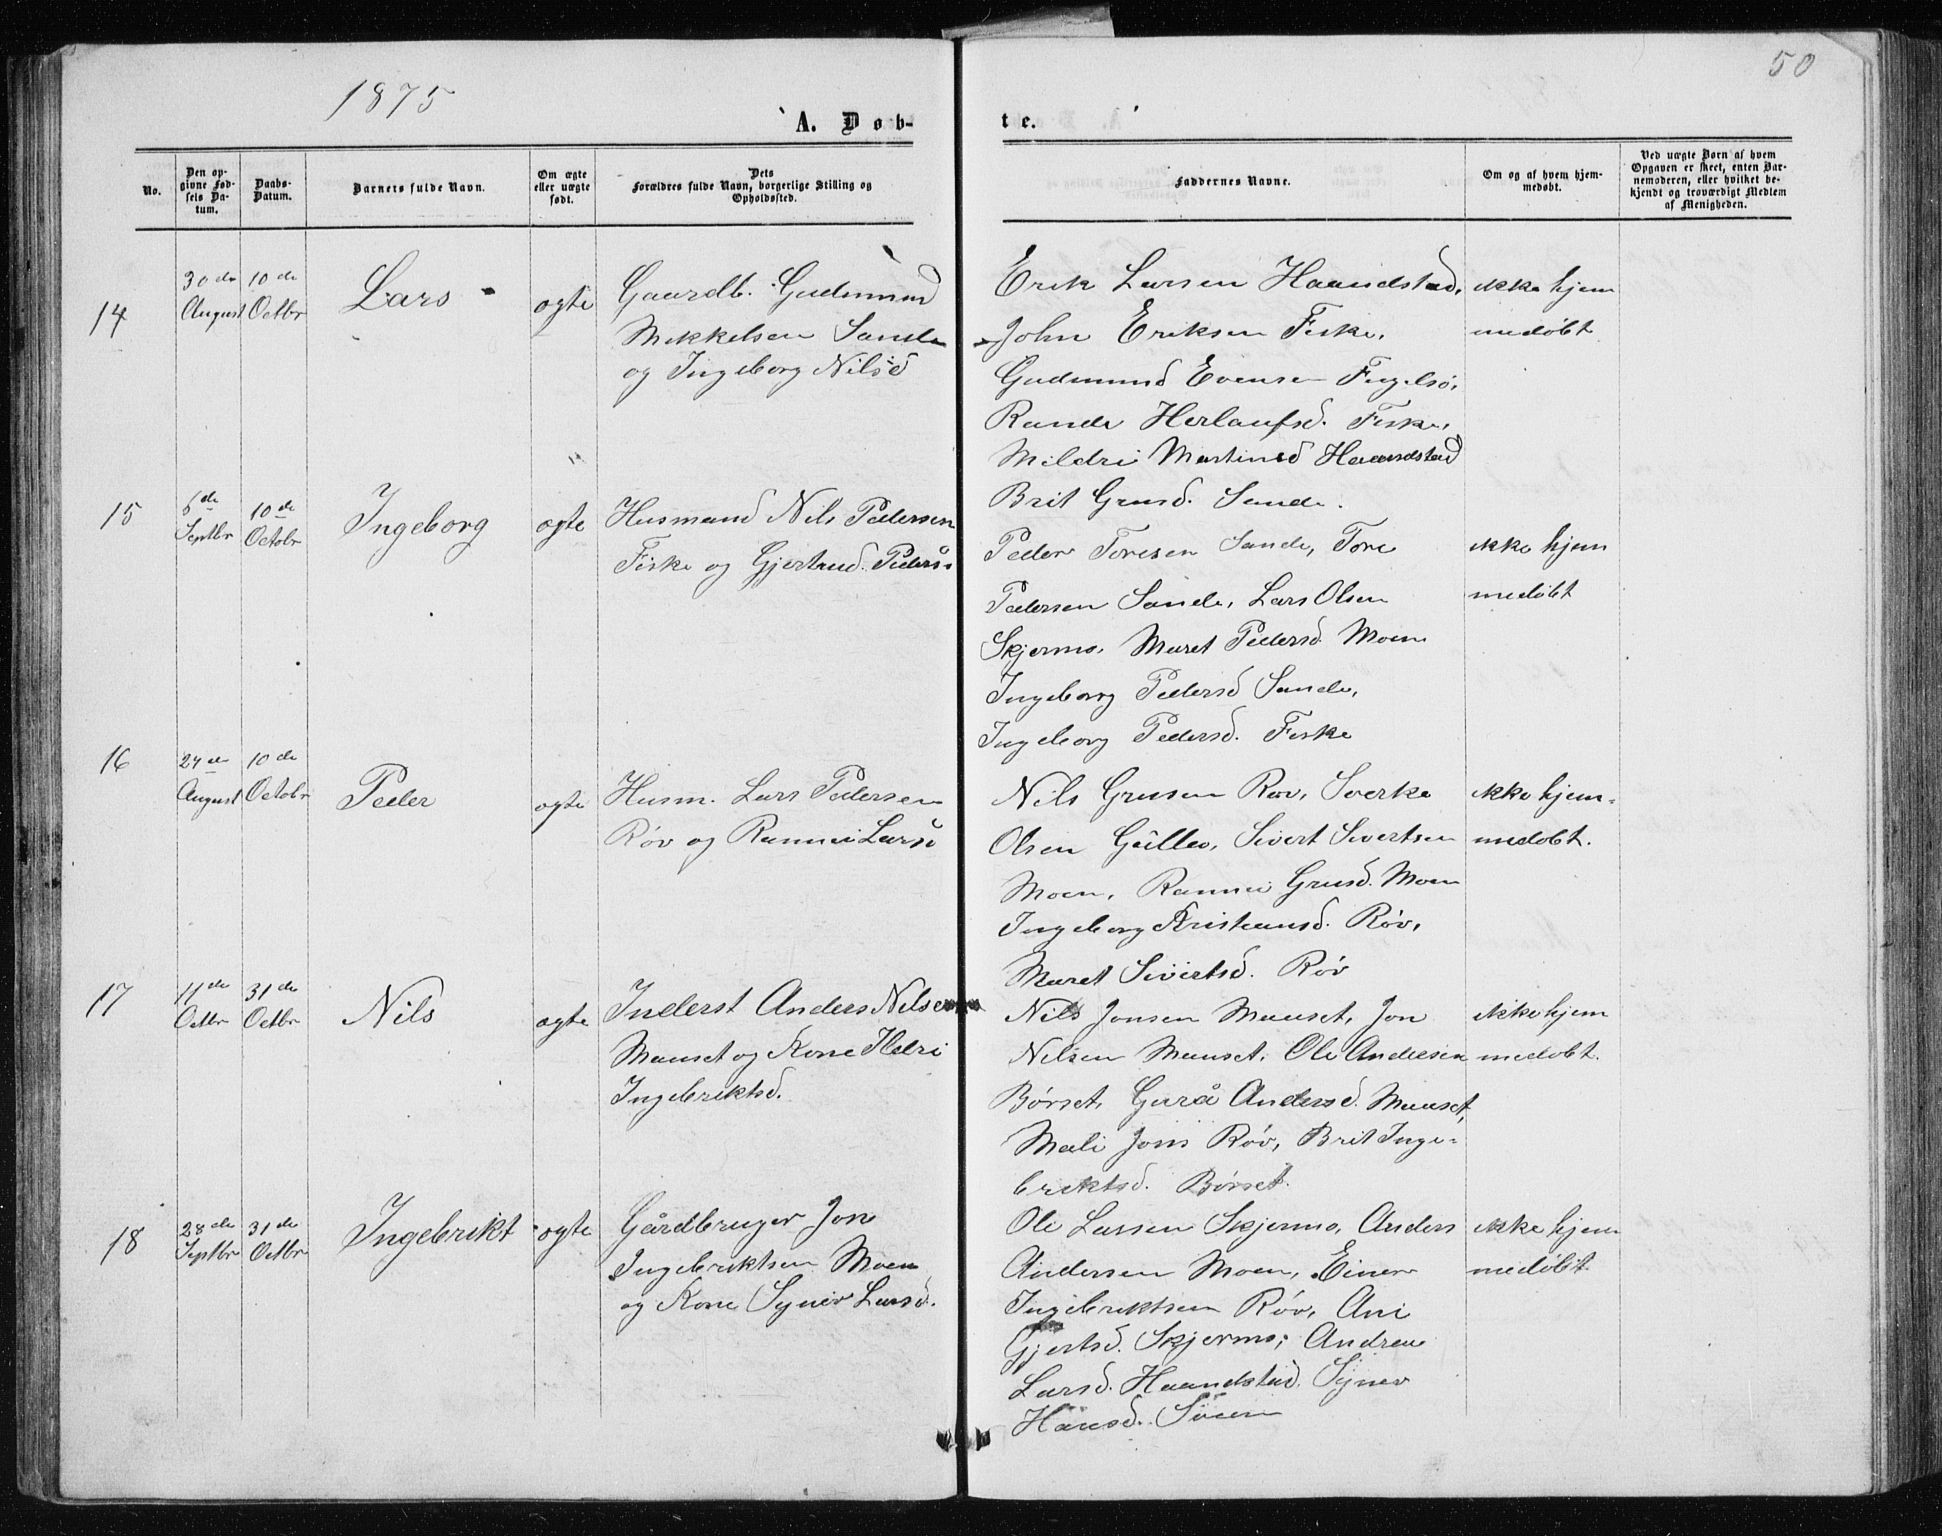 1875
50
A. Døb-
te.
No.
Den op-
givne Fød-
sels Da-
tum.
Daabs-
Datum.
Barnets fulde Navn.
Om ægte
eller uægte
født.
Dets
Forældres fulde Navn, borgerlige Stilling og
Opholdssted.
Faddernes Navne.
Om og af hvem hjem-
medøbt.
Ved uægte Børn af hvem
Opgaven er skeet, enten Bar-
nemoderen, eller hvilket be-
kjendt og troværdigt Medlem
af Menigheden.
14
30de
August
10de
Octbr
Lars
ægte
Gaardb. Gudmund
Mikkelsen Sande
og Ingeborg Nilsd
Erik Larsen Haandstad,
John Eriksen Fiske,
Gudmund Evensen Fugelsø,
Rande Herlaufsd. Fiske,
Mildri Martinsd Haandstad
Brit Grusd. Sande.
ikke hjem
medøbt.
15
6de
Septbr
10de
Octobr
Ingeborg
ægte
Husmand Nils Pedersen
Fiske og Gjertrud Pedersd
Peder Toresen Sande, Tore
Pedersen Sande, Lars Olsen
Skjermo, Maret Pedersd Moen
Ingeborg Pedersd Sande,
Ingeborg Pedersd. Fiske
ikke hjem
medøbt
16
24de
August
10de
Octobr
Peder
ægte
Husm. Lars Pedersen
Røv og Rannei Larsd
Nils Grusen Røv, Sverke
Olsen Gulla, Sivert Sivertsen
Moen, Rannei Grusd. Moen
Ingeborg Kristiansd. Røv,
Maret Sivertsd. Røv
ikke hjem-
medøbt.
17
11de
Octbr
31de
Octbr
Nils
ægte
Inderst Anders Nilsen
Mauset og Kone Ildri
Ingebriktsd.
Nils Jonsen Mauset, Jon
Nilsen Mauset, Ole Andersen
Børset, Gurå Andersd. Mauset,
Mali Jonsd Røv, Brit Inge-
briktsd. Børset.
ikke hjem
medøbt.
18
28de
Septbr
31de
Octbr
Ingebrikt
ægte
Gårdbruger Jon
Ingebriktsen Moen
og Kone Synev Larsd.
Ole Larsen Skjermo, Anders
Andersen Moen, Einer
Ingebriktsen Røv, Ani
Gjertsd. Skjermo, Andrea
Larsd. Haandstad. Synev
Hansd.
ikke hjem
medøbt